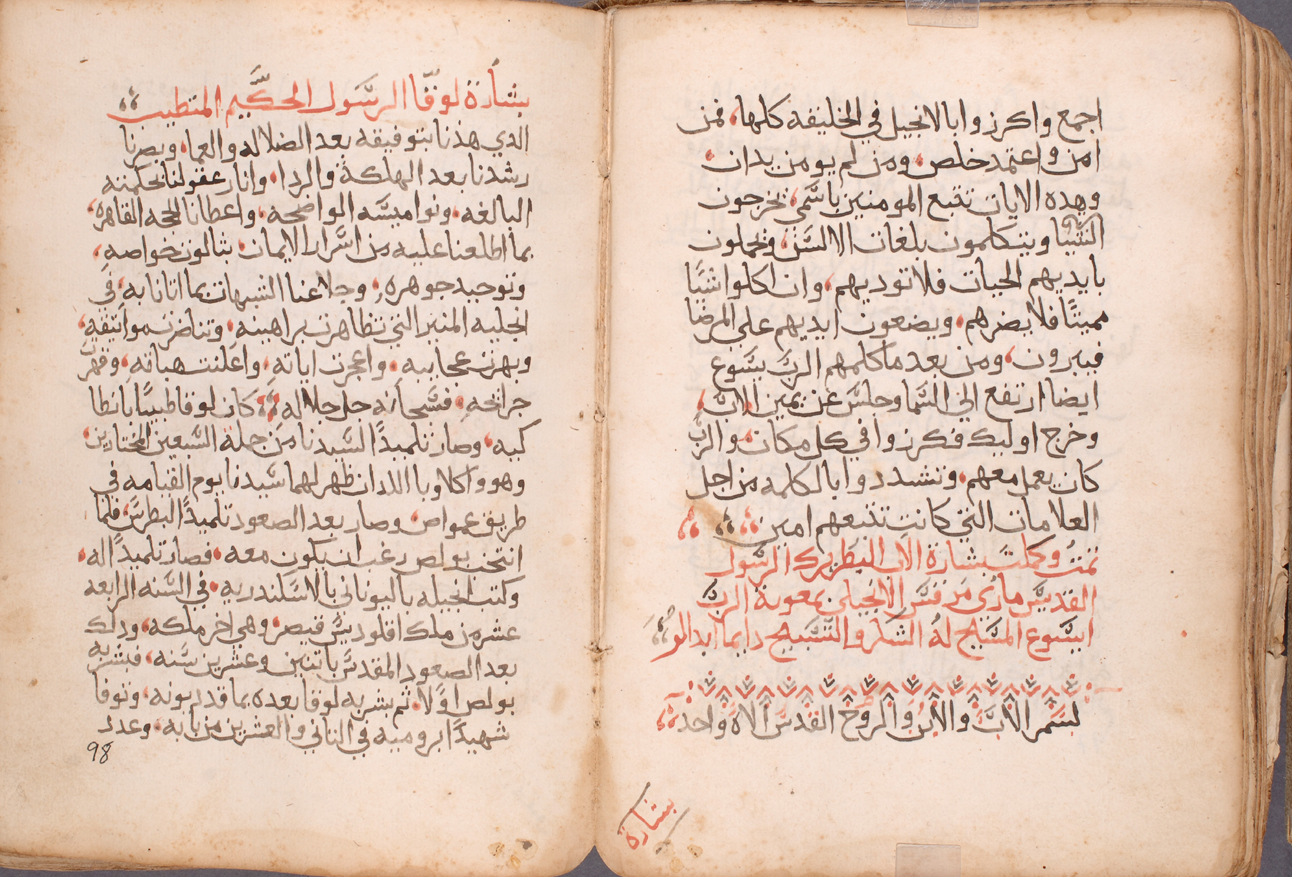 اجمع واكرزوا بالانجيل في الخليقه كلها، فمن
امن واعتمد خلص، ومن لم يومن يدان،
وهده الايات تتبع المومنين باسمي، يخرجون
ويتكلمون بلغات الالسن، ويحملون
بايديهم الحيات فلا توديهم، وان اكلوا شيًا
مميتًا فلا يضرهم، ويضعون ايديهم علي المرضا
فيبرون، ومن بعد ما كلمهم الرب يسوع
ايضا ارتفع الي السما وجلس عن يمين الاب،
وخرج اوليك فكرزوا في كل مكان، والرب
كان يعمل معهم، وتشددوا بالكلمه من اجل
العلامات التي كانت تتبعهم امين
تمت وكملت بشارة الاب البطريرك الرسول
القديس ماري مرقس الانجيلي بمعونة الرب
ايسوع المسيح لهُ الشكر والتسبيح دايما ابدا
بسم الاب والابن والروح القدس الاه واحد
بشارة
بشارة لوقا الرسول الحكيم المتطبب
الدي هدنا بتوفيقه بعد الضلاله والعما، وبصرنا
رشدنا بعد الهلكة والردا، وانار عقولنا بحكمته
البالغه، ونواميسه الواضحه، واعطانا الحجه القاهره
بما اطلعنا عليه من اسرار الايمان، بثالوث خواصه،
وتوحيد جوهره، وجلا عنا الشبهات بما اتانا به في
انجليه المنير التي تظاهرت براهينه، وتناصرت مواثقه،
وبهرت عجايبه، واعجزت اياته، واعلنت هباته، وقهرت
جرايحه، فسبحانه جل جلاله كان لوقا طبيبًا بانطا
كيه، وصار تلميدًا لسيدنا من جملة السبعين المختارين،
وهو واكلاوبا اللدان ظهر لهما سيدنا يوم القيامه في
طريق عمواص، وصار بعد الصعود تلميدًا لبطرس، فلما
انتخب بولص رغب ان يكون معه، فصار تلميدًا له،
وكتب انجيله باليوناني بالاسكندريه، في السنه الرابعه
عشر من ملك اقلوديس قيصر، وهي اخر ملكه، ودلك
بعد الصعود المقدس باتنين وعشرين سنه، فبشر به
بولص اولًا، ثم بشر به لوقا بعده بمقدونيه، وتوفا
شهيدًا بروميه في التاني والعشرين من بابه، وعدد
98